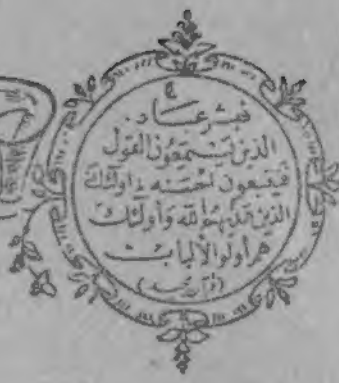 فبشر عباد.
الذين يستمعون القول
فيتبعون احسنه، اولئك
الذين هداهم الله واولئك
هم اولو الألباب